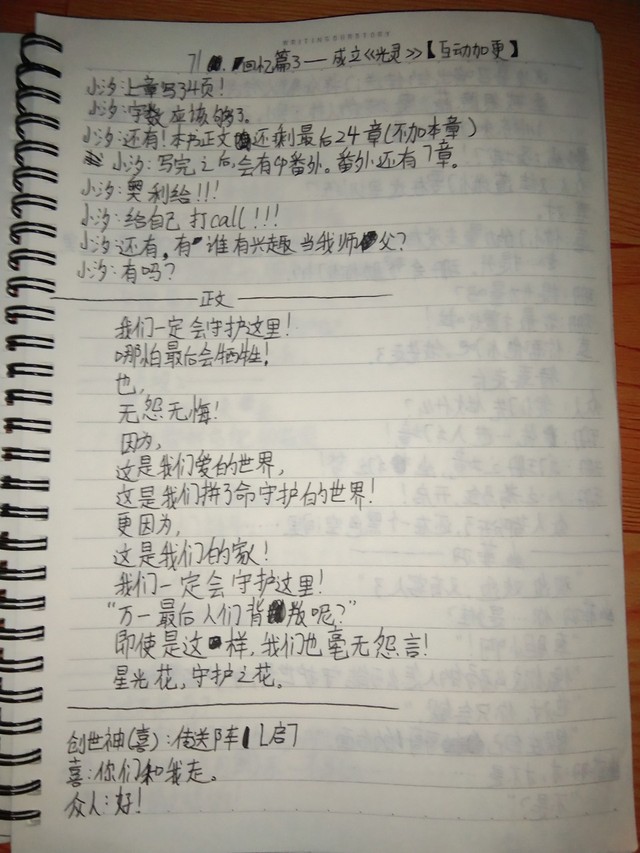 71 回忆篇3——成立《光灵》【互动加更】
小汐:上章写34页!
小汐:字数应该够了。
小汐:还有!本书正文还剩最后24章(不加本章)
小汐:写完之后,会有番外。番外还有7章。
小汐:奥利给!!!
小汐:给自己打call!!!
小汐:还有,有谁有兴趣当我师父?
小汐:有吗?
正文
我们一定会守护这里!
哪怕最后会牺牲!
也,
无怨无悔!
因为,
这是我们爱的世界,
这是我们拼了命守护的世界!
更因为,
这是我们的家!
我们一定会守护这里!
“万一最后人们背叛呢?”
即使是这样,我们也毫无怨言!
星光花,守护之花。
创世神(喜):传送阵
喜:你们和我走。
众人:好!